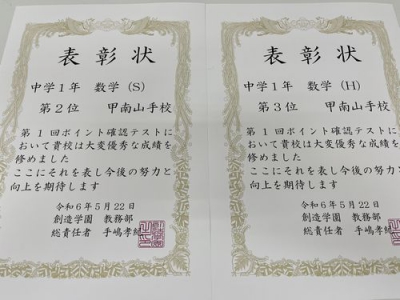 表彰状
中学1年 数学 (S)
第2位 甲南山手校
第1回ポイント確認テストに
おいて貴校は大変優秀な成績を
修めました
ここにそれを表し今後の努力と
向上を期待します
令和6年5月22日
創造学園 教務部
総責任者 手嶋孝紀
表彰状
中学1年 数学 (H)
第3位 甲南山手校
第1回ポイント確認テストに
おいて貴校は大変優秀な成績を
修めました
ここにそれを表し今後の努力と
向上を期待します
令和6年5月22日
創造学園 教務部
総責任者 手嶋孝